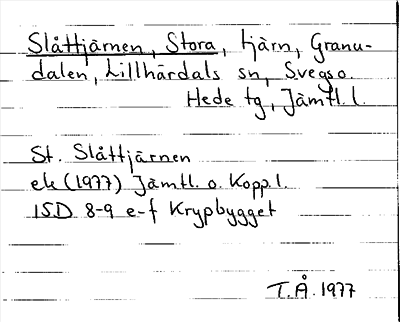 Slåttjärnen, Stora, tjärn, Granu-
dalen, Lillhärdals sn, Svegs o.
Hede tg, Jämtl. l.
St. Slåttjärnen
ek (1977) Jämtl. o. Kopp. l.
15D 8-9 e-f Krypbygget
T.Å. 1977